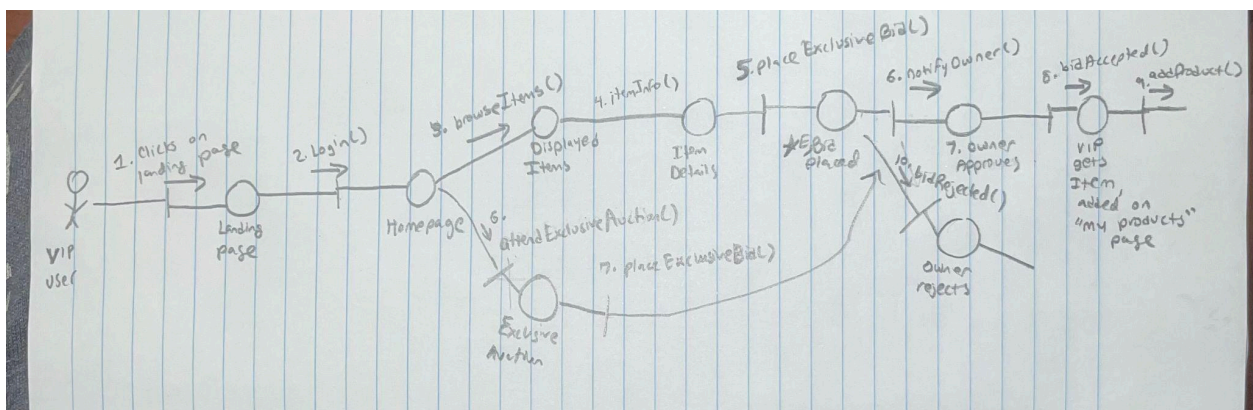 1. Clicks on
landing page
VIP
user
Landing
page
2. Login()
Homepage
3. browseItems()
Displayed
Items
4. itemInfo()
Item
Details
5. placeExclusiveBid()
Bid
placed
6. notifyOwner()
7. Owner
Approves
8. bidAccepted()
VIP
gets
Item,
added on
"my products"
page
9. addProduct()
10. bidRejected()
Owner
rejects
6.
attendExclusiveAuction()
Exclusive
Auction
7. placeExclusiveBid()